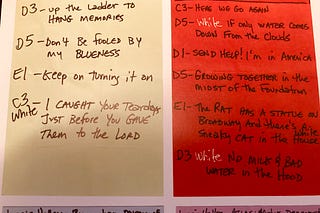 D3- up the Ladder to
HANG MEMORIES
D5- Don't Be Fooled By
my BLUENESS
E1- Keep on Turning it on
C3- I CAUGHT Your Teardrops
White Just Before You GAVE
Them to the LORD
C3- HERE WE GO AGAIN
D5- White If only WATER COMES
DOWN FROM the Clouds
D1- SEND HELP! I'm in AMERICA
D5- GROWING TOGETHER in the
midst of The Foundation
E1- The RAT HAS A STATUE on
BROADWAY And There's A
Sneaky CAT in the White House
D3 White NO MILK & BAD
WATER in the HOOD